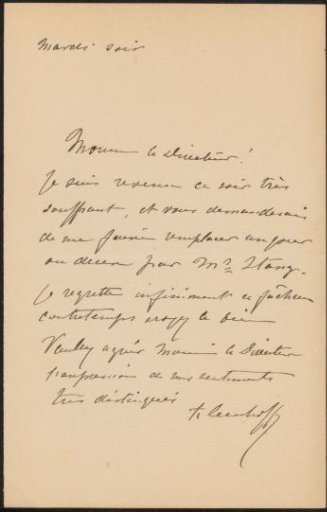 Mardi soir
Monsieur le Directeur!
Je suis revenu ce soir très
souffrant, et vous demanderais
de me faire remplacer un jour
ou deux par Mr Stang.
Je regrette infiniment ce fâcheux
contretemps croyez le bien
Veuillez agréer Monsieur le Directeur
l'expression de mes sentiments
très distingués